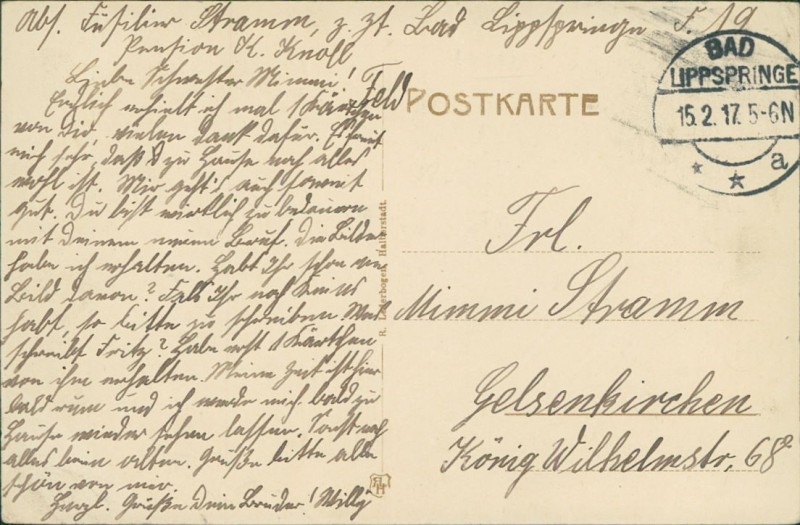 Abs. Füsilier Stramm, z. Zt. Bad Lippspringe J. 19
Pension K. Knoll
Liebe Schwester Mimmi!
Endlich erhielt ich mal 1 Kärtchen
von dir, vielen Dank dafür. Es freut
mich sehr, daß zu Hause noch alles
wohl ist. Mir geht's auch soweit
gut. Du bist wirklich zu bedauern
mit Deinem neuen Beruf. Die Bilder
habe ich erhalten. Habt Ihr schon
Bild davon? Falls Ihr noch keins
habt, so bitte zu schreiben. Was
schreibt Fritz? Habe erst 1 Kärtchen
von ihm erhalten. Meine Zeit ist hier
bald rum und ich werde mich bald zu
Hause wieder sehen lassen. Sonst noch
alles beim alten. Grüße bitte alle
schön von mir.
Herzl. Grüße Dein Bruder! Willy
Feld
POSTKARTE
BAD
LIPPSPRINGE
15.2.17. 5-6N
* * a
R. Lederbogen, Halberstadt.
Frl.
Mimmi Stramm
Gelsenkirchen
König Wilhelmstr. 68